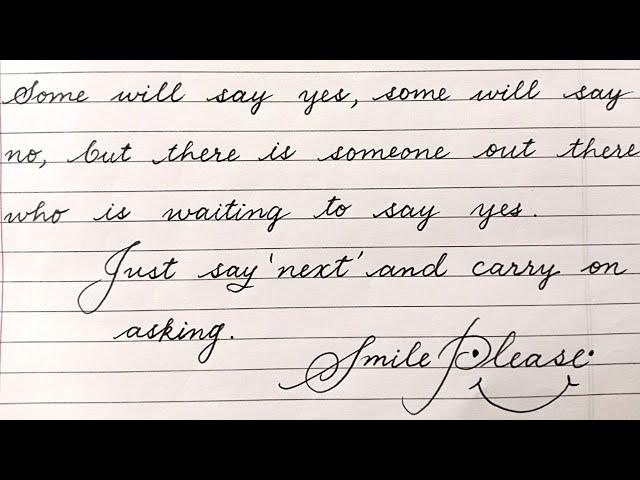 Some will say yes, some will say
no, but there is someone out there
who is waiting to say yes.
Just say 'next' and carry on
asking.
Smile Please.